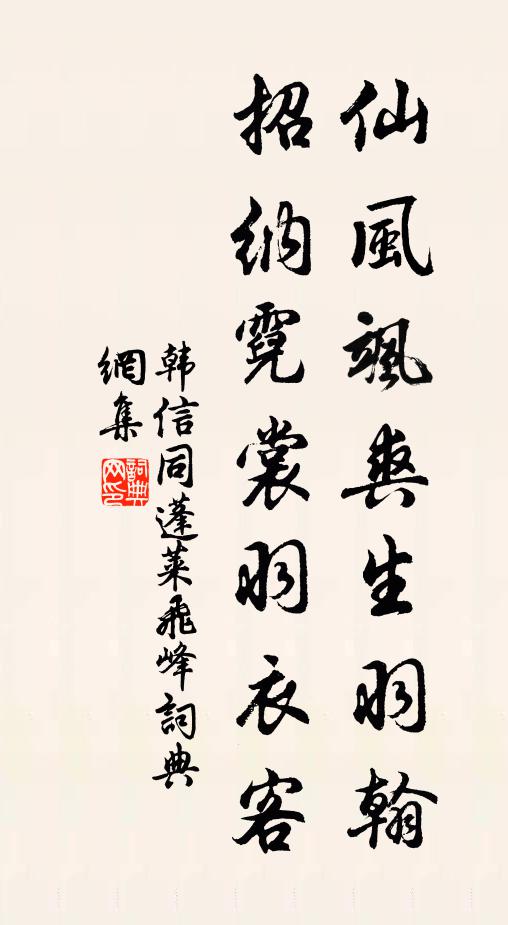 仙風颯爽生羽翰
招納霓裳羽衣客
韩信同蓬莱飛峰詞典
網集
詞典
网印